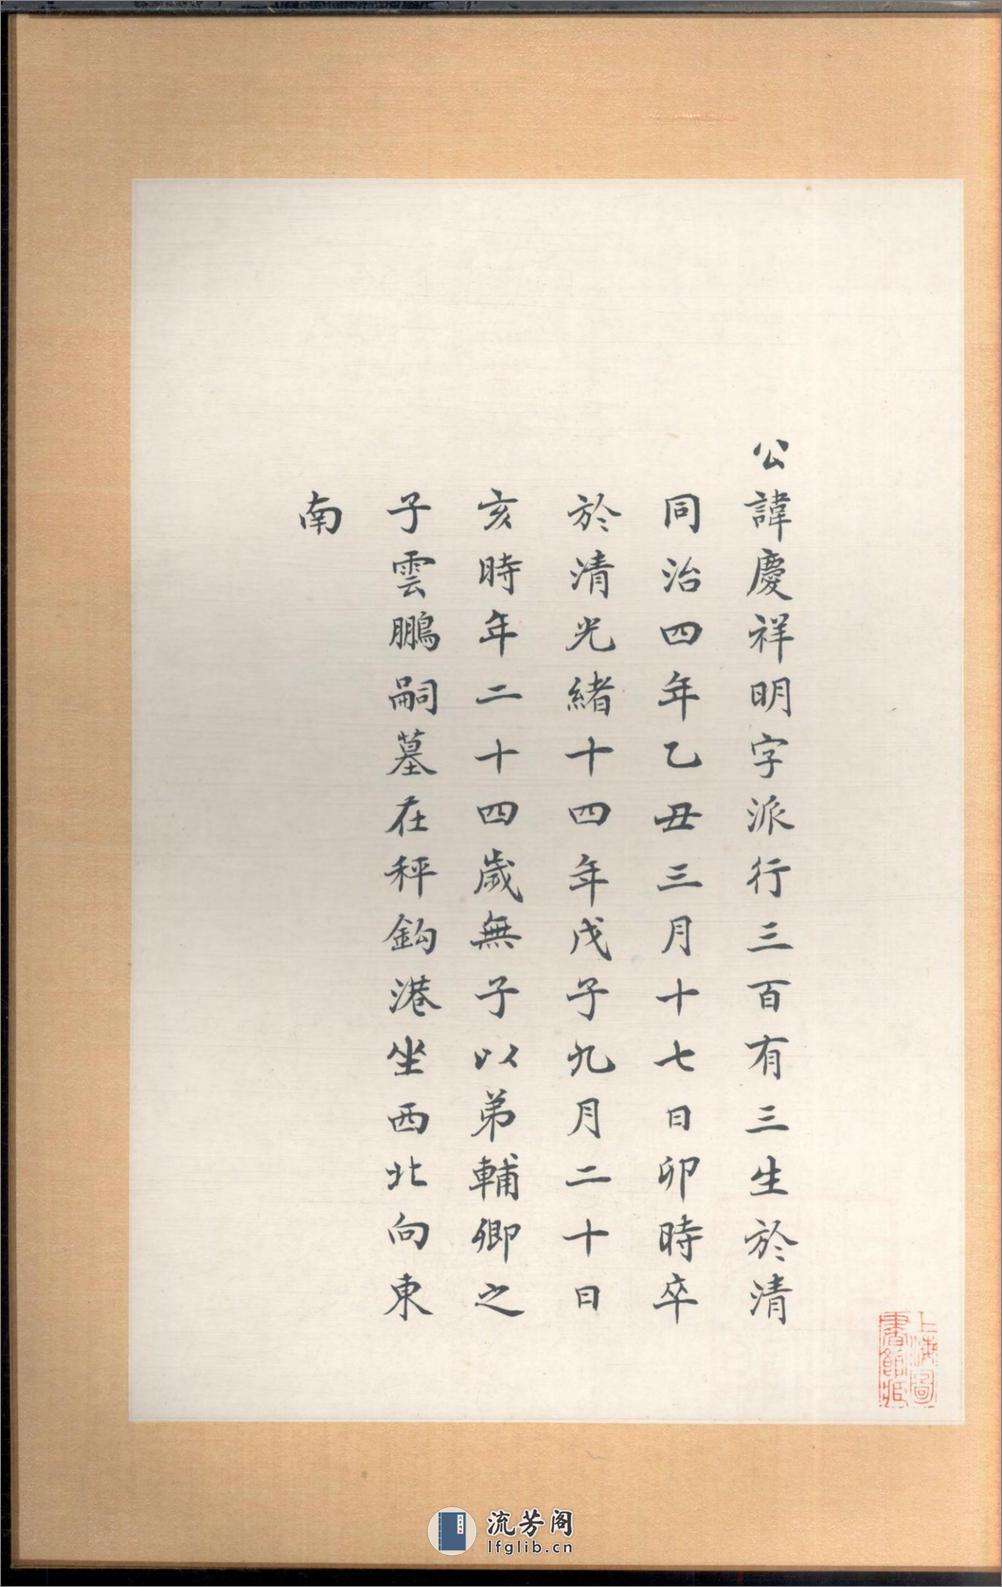 公諱慶祥明字派行三百有三生於清
同治四年乙丑三月十七日卯時卒
於清光緒十四年戊子九月二十日
亥時年二十四歲無子以弟輔卿之
子雲鵬嗣墓在秤鈎港坐西北向東
南
上海圖
書館藏
流芳阁
lfglib.cn